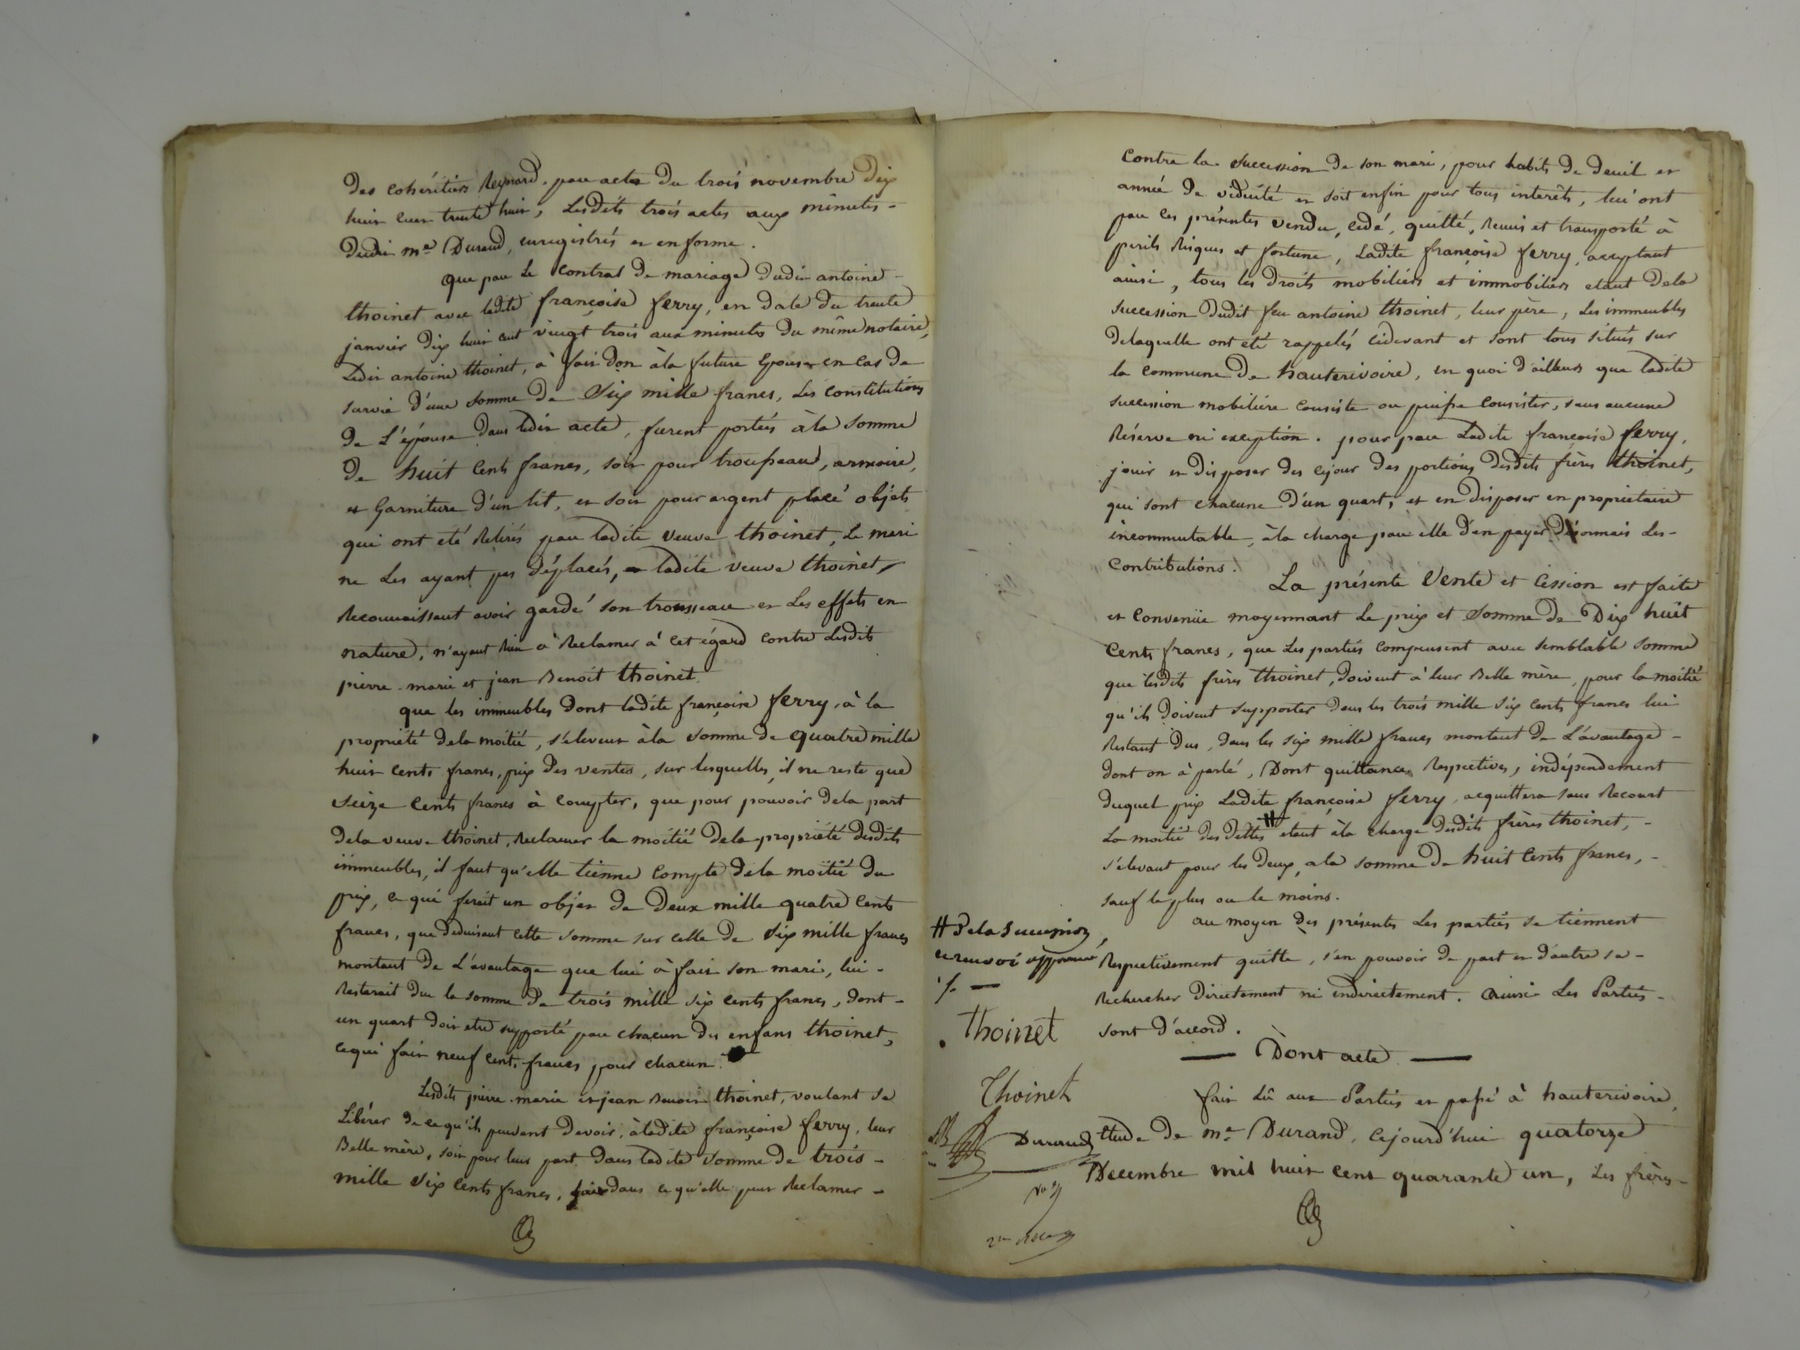 des cohéritiers Reynard, par acte du trois novembre dix
huit cent trente huit, Lesdits trois actes aux minutes-
dudit me Durand, enregistrés et en forme.
que par le contrat de mariage dudit antoine-
thoinet avec ladite françoise ferry, en date du trente
janvier dix huit cent vingt trois aux minutes du même notaire,
Ledit antoine thoinet, à fait don àla future Epouse en cas de
survie d'une somme de Six mille francs, Les constitutions
de L'épouse dans ledit acte, furent portées àla somme
de huit Cents francs, soit pour trousseau, armoire,
et Garniture d'un lit, et soit pour argent placé objets
qui ont été Retirés par ladite veuve thoinet, Le mari
ne Les ayant pas déplacés, ladite veuve thoinet,
Reconnaissant avoir gardé son trousseau et Les effets en
nature, n'ayant Rien à Réclamer à cet égard contre Lesdits
pierre-marie et jean Benoit thoinet.
que les immeubles dont ladite françoise ferry, à la
propriété dela moitié, s'élevent àla somme de quatre mille
huit cents francs, prix des ventes, sur lesquelles il ne reste que
seize cents francs à compter, que pour pouvoir dela part
dela veuve thoinet, Réclamer la moitié dela propriété desdits
immeubles, il faut qu'elle tienne Compte dela moitié du
prix, ce qui ferait un objet de deux mille quatre Cents
francs, que déduisant cette somme sur celle de Six mille francs
montant de L'avantage que lui à fait son mari, lui-
Resterait due la somme de trois mille six cents francs, dont-
un quart doit etre supporté par chacun des enfans thoinet,
cequi fait neuf cents francs pour chacun.
Lesdits pierre-marie et jean Benoit thoinet, voulant se
Libérer de ce qu'ils peuvent devoir, àladite françoise ferry, leur
Belle mère, soit pour leur part dans ladite somme de trois-
mille Six Cents francs, soit dans ce qu'elle peut Réclamer-
contre la succession de son mari, pour habits de deuil et
année de viduité et soit enfin pour tous intérêts, lui ont
par ces présentes vendu, cédé, quitté, Remis et transporté à
perils Risques et fortune, Ladite françoise ferry, acceptant
ainsi, tous les droits mobiliers et immobiliers etant dela
succession dudit feu antoine thoinet, leur père, Les immeubles
delaquelle ont été rappelés cidevant et sont tous situés sur
la commune de hauterivoire, en quoi d'ailleurs que ladite
succession mobilière consiste ou puisse consister, sans aucune
Réserve ni exception. pour par Ladite françoise ferry,
jouir et disposer dès cejour des portions desdits frères thoinet,
qui sont chacune d'un quart, et en disposer en propriétaire
incommutable, àla charge par elle d'en payer désormais Les-
Contributions.
La présente Vente et Cession est faite
et Convenüe moyennant Le prix et Somme de Dix huit
Cents francs, que Les parties compensent avec semblable somme
que lesdits frères thoinet, doivent à leur Belle mère, pour la moitié
qu'ils doivent supporter dans les trois mille six cents francs lui
Restant dus, dans les six mille francs montant de L'avantage-
dont on à parlé, Dont quittances Respectives, indépendement
duquel prix Ladite françoise ferry, acquittera sans Recourt
La moitié des dettes # etant àla charge desdits frères thoinet,-
s'élevant pour les deux, ala somme de huit Cents francs,-
sauf le plus ou le moins.
au moyen des présentes Les parties se tiennent
Respectivement quitte, s'en pouvoir de part et d'autre se-
Rechercher directement ni indirectement. Ainsi Les Parties-
sont d'accord.
— Dont acte —
fait Lû aux Parties et passé à hauterivoire,
Etude de me Durand, cejourd'hui quatorze
Decembre mil huit cent quarante un, Les frères-
# dela succession
ce renvoi approuvé
Thoinet
Thoinet
Durand